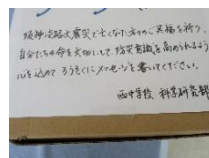 阪神淡路大震災で亡くなた方々のご冥福を祈り、
自分たちの命を大切にして、防災意識を高められるよう
心を込めて ろうそくにメッセージを書いてください。
西中学校 科学研究部